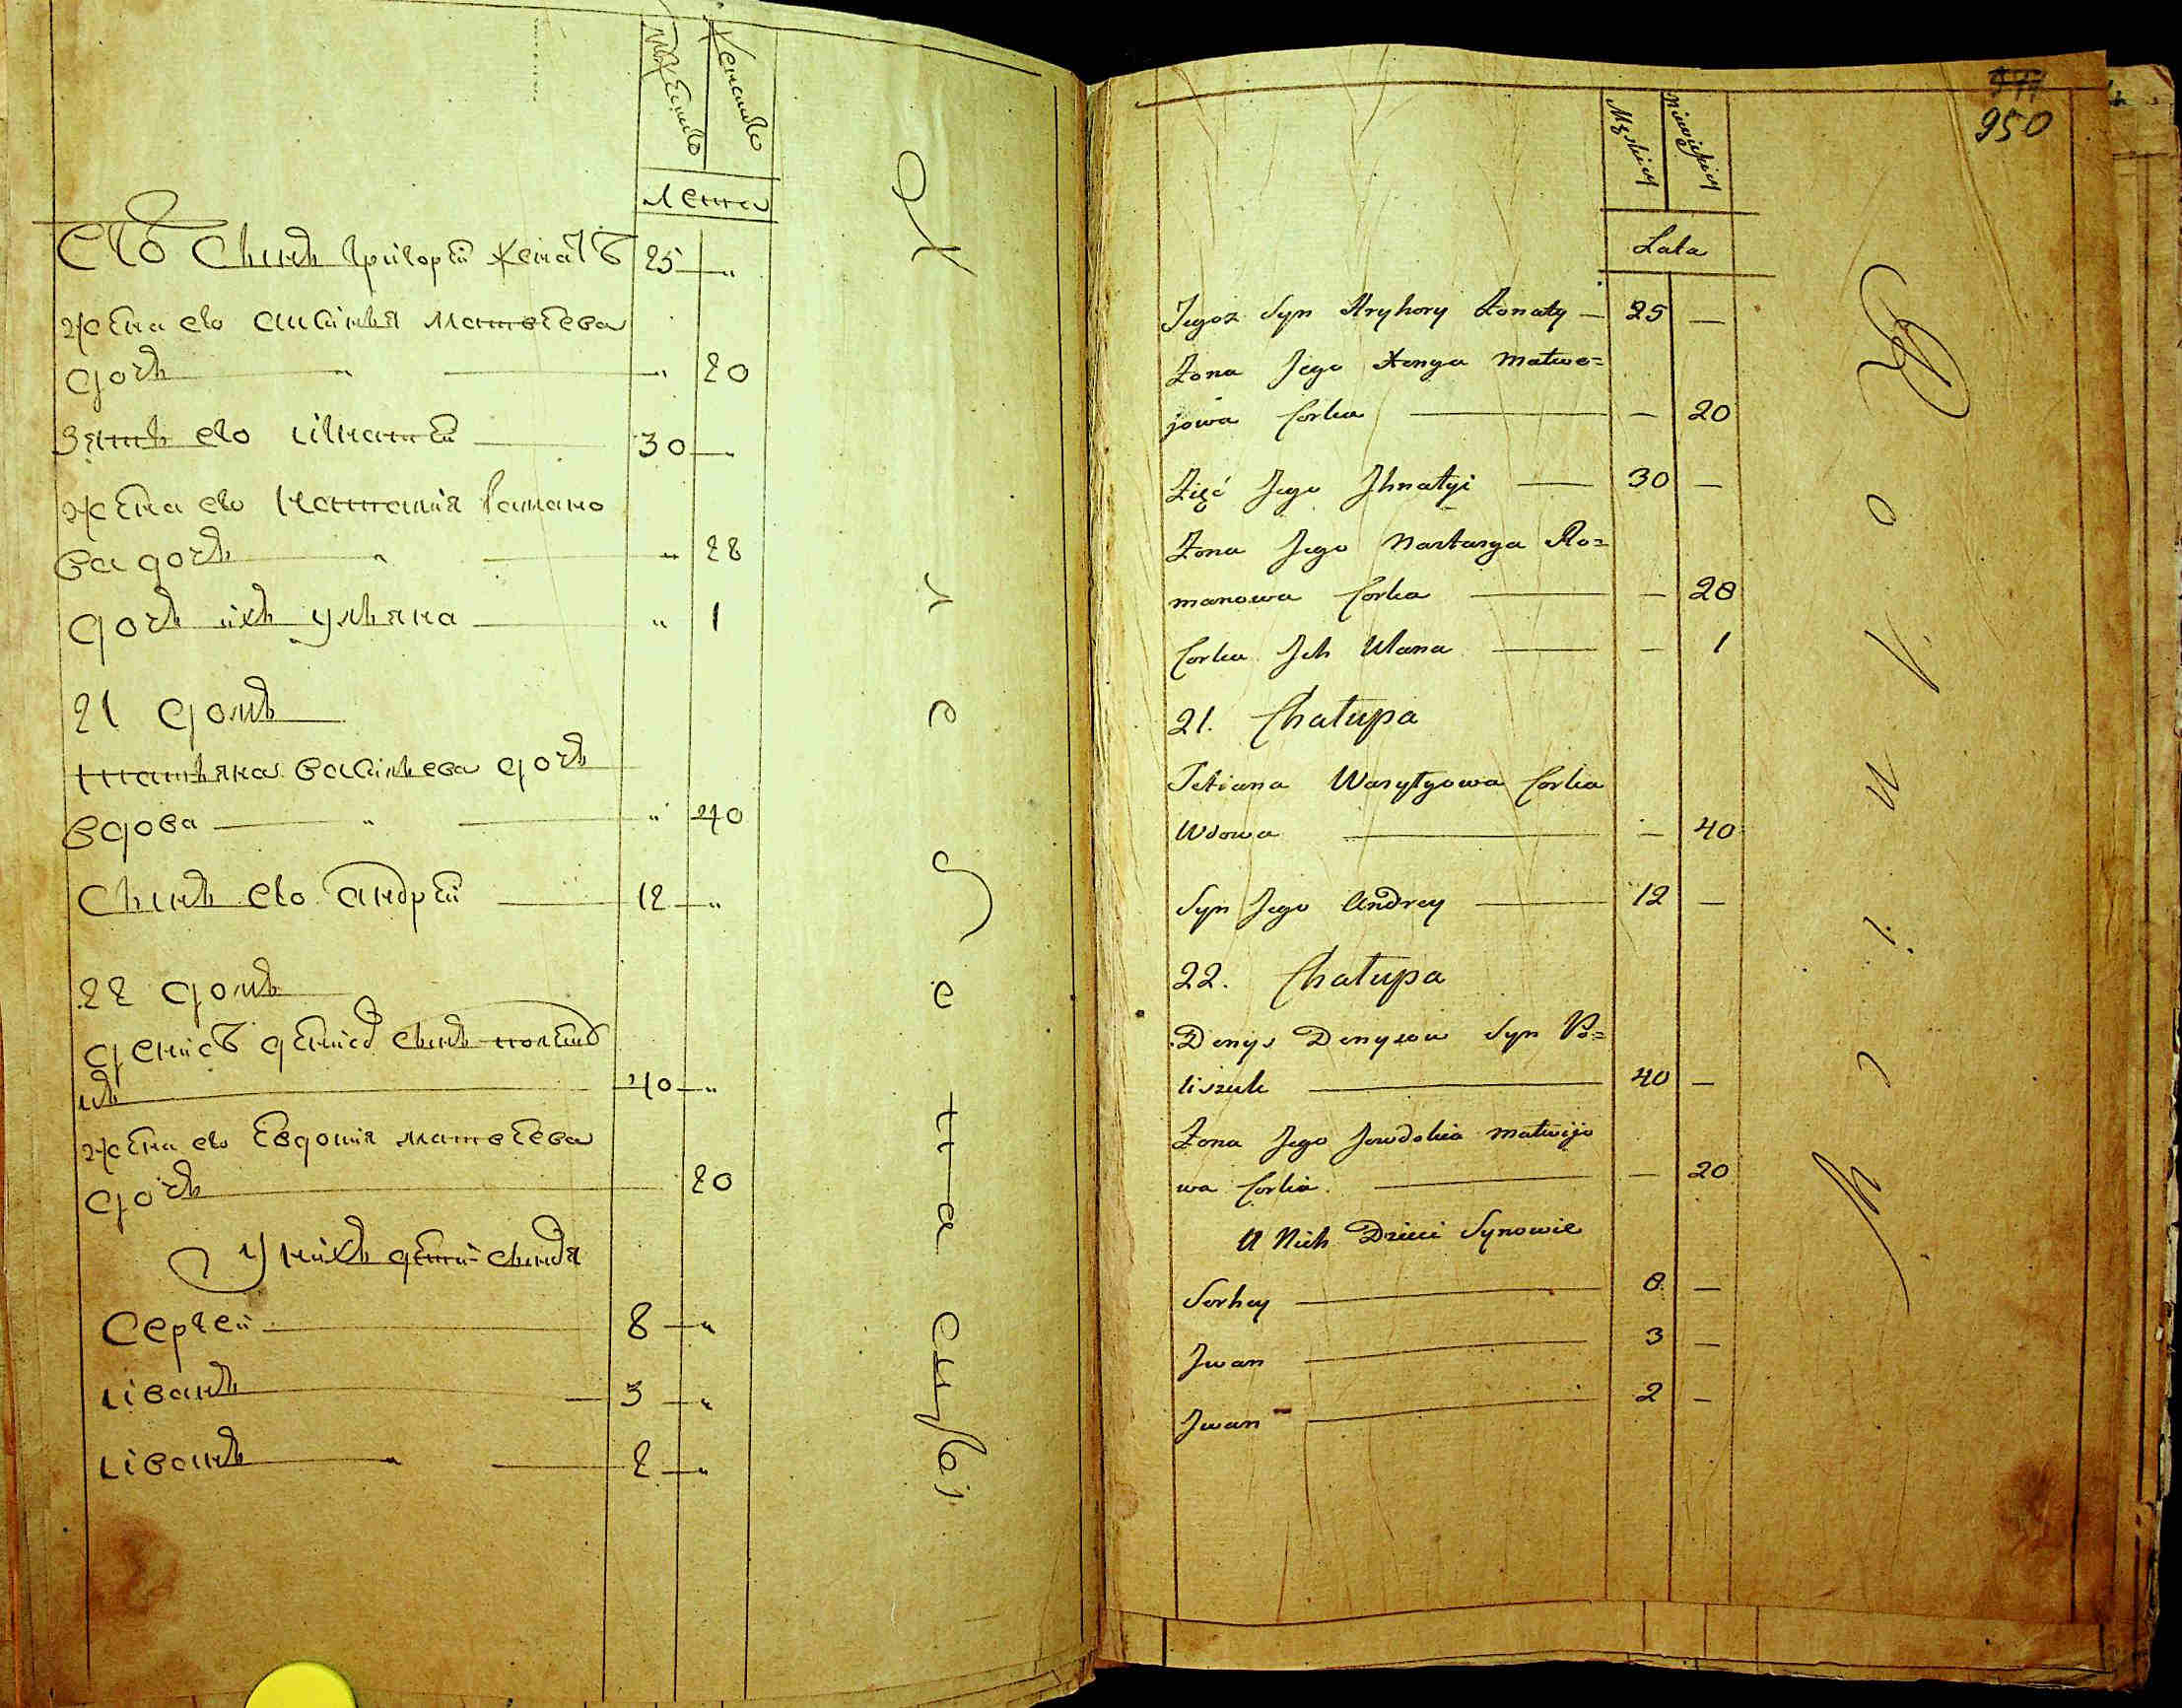 Мужеска
Женска
Лета
Его Сынъ Григорей женатъ 25 "
жена его Матвеева
дочь " " 20
Зять его Игнатей 30
жена его Настасия Романо
ва дочь " " 28
дочь ихъ Ульяна " 1
21 домъ
Татьяна Васильева дочь
вдова " " 40
Сынъ его Андрей 12 "
22 домъ
Денисъ Денисовъ Сынъ Полещу
къ 40 "
жена его Евдокия Матвеева
дочь 20
У нихъ дети Сыновя
Сергей 8 "
Иванъ 3 "
Иванъ " 2 "
947
950
Męskiey
Niewieyskiey
Lata
Jegoz Syn Hryhory Żonaty — 25 —
Żona Jego Xenya Matwe=
jowa Corka — — 20
Zięć Jego Jhnatyi — 30 —
Żona Jego Nastasya Ro=
manowa Corka — — 28
Corka Jch Ulana — — 1
21. Chałupa
Tetiana Wasylyowa Corka
Wdowa — — 40
Syn Jego Andrey — 12 —
22. Chałupa
Denys Denysow Syn Po=
liszuk — 40 —
Żona Jego Jewdokia Matwijo
wa Corka — — 20
U Nich Dzieci Synowie
Serhey — 8 —
Jwan — 3 —
Jwan — 2 —